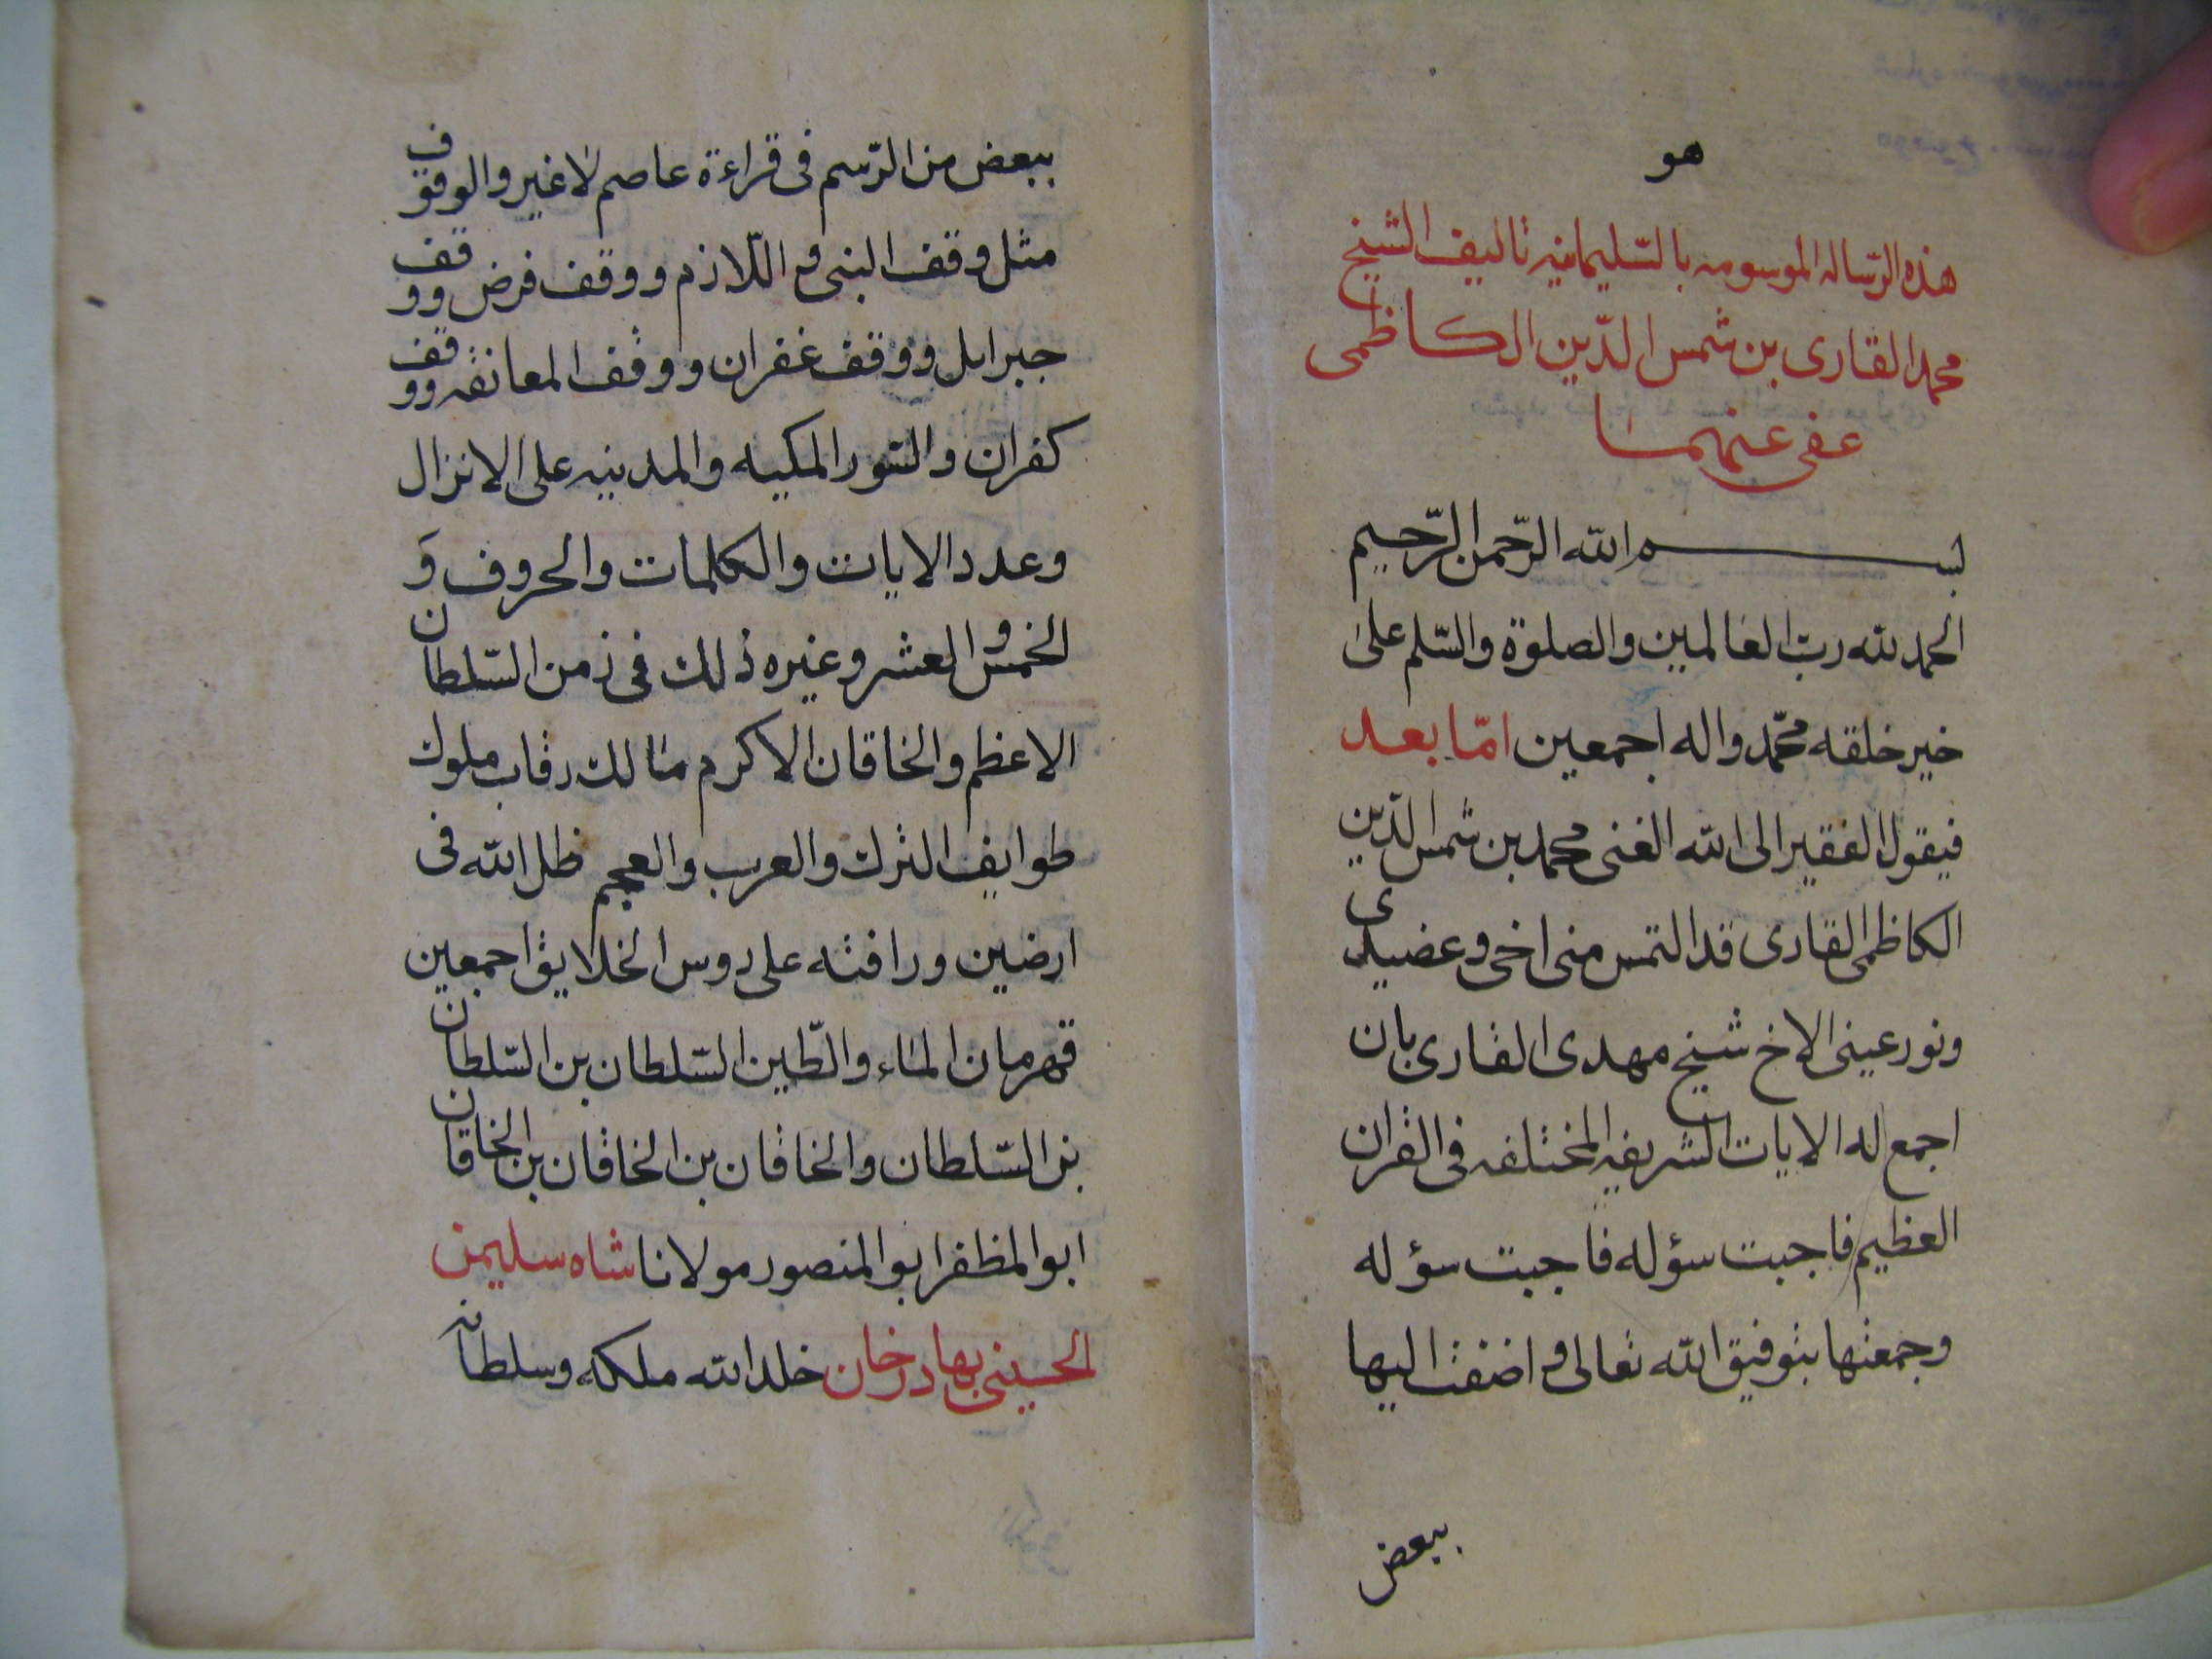 هو
هذه الرّساله الموسومه بالسّليمانيه تاليف الشيخ
محمد القارى بن شمس الدّين الكاظمى
عفى عنهما
بسم الله الرّحمن الرّحيم
الحمد لله ربّ العالمين والصلوة والسّلم على
خير خلقه محمّد واله اجمعين امّا بعد
فيقول الفقير الى الله الغنى محمد بن شمس الدّين
الكاظمى القارى قد التمس منى اخى وعضيدى
ونور عينى الاخ شيخ مهدى القارى بان
اجمع له الايات الشريفه المختلفه فى القران
العظيم فاجبت سؤله فاجبت سؤله
وجمعتها بتوفيق الله تعالى و اضفت اليها
ببعض
ببعض من الرّسم فى قراءة عاصم لا غير والوقوف
مثل وقف النبى و اللّازم ووقف فرض ووقف
جبرايل ووقف غفران ووقف المعانقه ووقف
كفران والسّور المكيه والمدينيه على الانزال
وعدد الايات والكلمات والحروف وَ
الخمس و العشر وغيره ذلك فى زمن السّلطان
الاعظم والخاقان الاكرم مالك رقاب ملوك
طوايف الترك والعرب والعجم ظل الله فى
ارضين ورافته على روس الخلايق اجمعين
قهرمان الماء والطّين السّلطان بن السّلطان
بن السّلطان والخاقان بن الخاقان بن الخاقان
ابو المظفر ابو المنصور مولانا شاه سليمن
الحسينى بهادر خان خلد الله ملكه وسلطانه